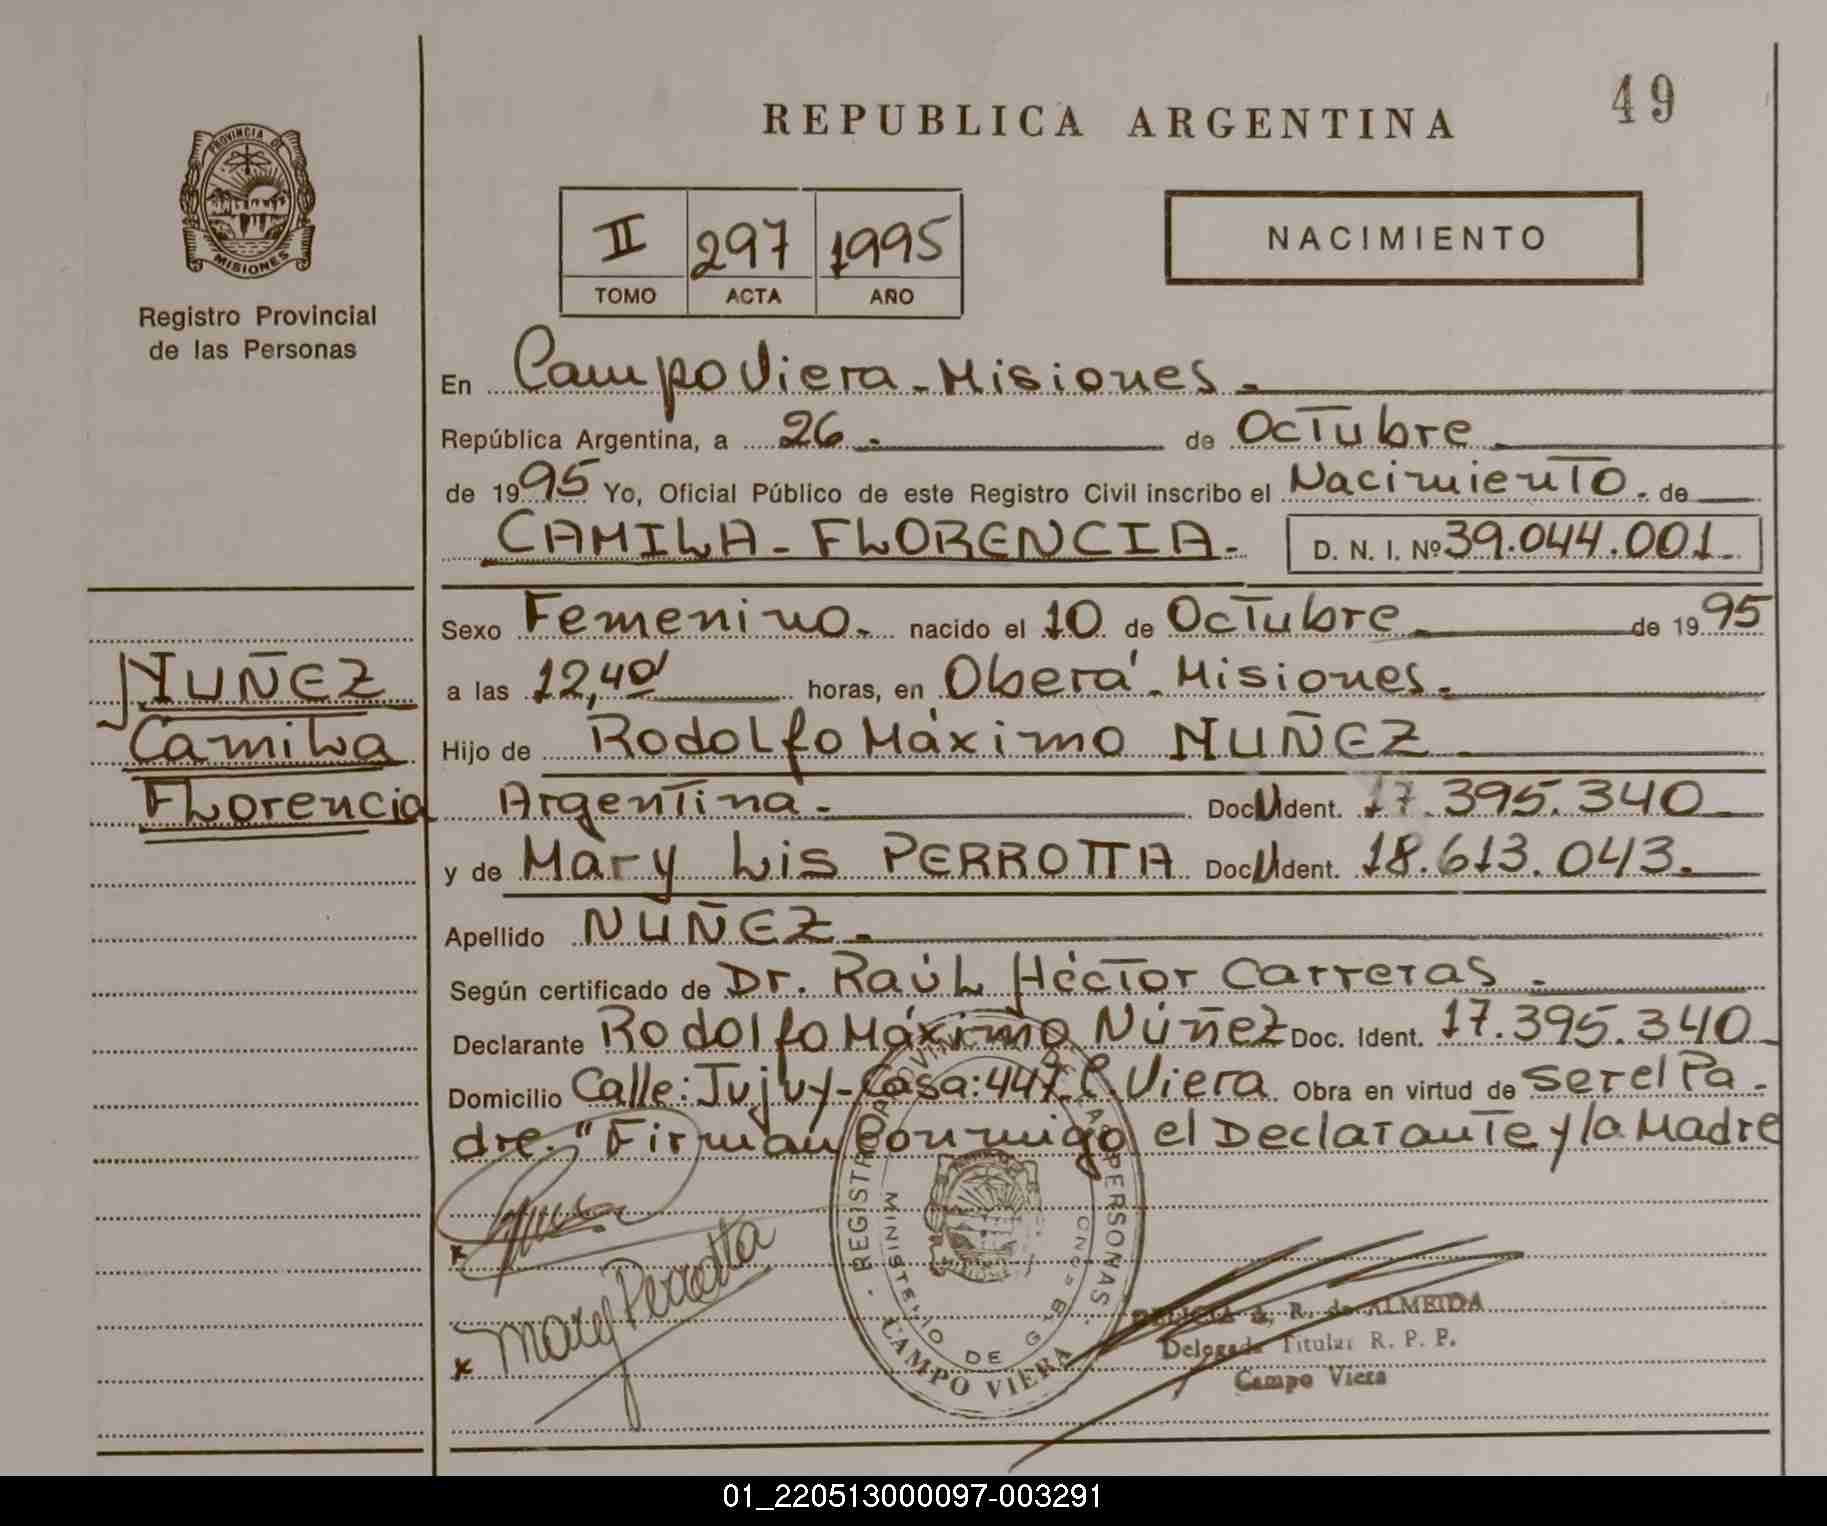 49
REPUBLICA ARGENTINA
PROVINCIA DE
MISIONES
Registro Provincial
de las Personas
II 297 1995
TOMO ACTA AÑO
NACIMIENTO
En Campo Viera - Misiones.
República Argentina, a 26. de Octubre
de 1995 Yo, Oficial Público de este Registro Civil inscribo el Nacimiento. de
CAMILA - FLORENCIA. D. N. I. Nº 39.044.001.
Sexo Femenino. nacido el 10 de Octubre de 1995
NUÑEZ
Camila
Florencia
a las 12,40' horas, en Oberá - Misiones.
Hijo de Rodolfo Máximo NUÑEZ
Argentina. Doc U Ident. 17.395.340
y de Mary Lis PERROTTA Doc U Ident. 18.613.043.
Apellido NUÑEZ.
Según certificado de Dr. Raúl Héctor Carreras.
Declarante Rodolfo Máximo Núñez Doc. Ident. 17.395.340
Domicilio Calle: Jujuy - Casa: 447 C. Viera Obra en virtud de ser el Pa-
dre. "Firman Conmigo el Declarante y la Madre
Mary Perrotta
REGISTRO PERSONAS
MINISTERIO DE
CAMPO VIERA
A. R. de ALMEIDA
Delegada Titular R. P. P.
Campo Viera
01_220513000097-003291